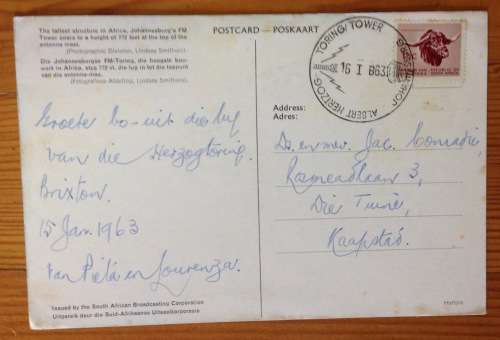 The tallest structure in Africa, Johannesburg's FM
Tower soars to a height of 772 feet at the top of the
antenna mast.
(Photographic Division, Lindsay Smithers).
Die Johannesburgse FM-Toring, die hoogste bou-
werk in Afrika,
(Fotografiese Afdeling, Lindsay Smithers).
POSTCARD – POSKAART
TORING/TOWER
ALBERT HERTZOG
16 I 863
Address:
Adres:
Groete bo-uit die lug
van die Hertzogtoring,
Brixton.
15 Jan. 1963
van Piet en Lourenza.
Ds. en mev. Jac. Conradie,
3,
Die Tuine,
Kaapstad.
Issued by the South African Broadcasting Corporation
Uitgereik deur die Suid-Afrikaanse Uitsaaikorporasie